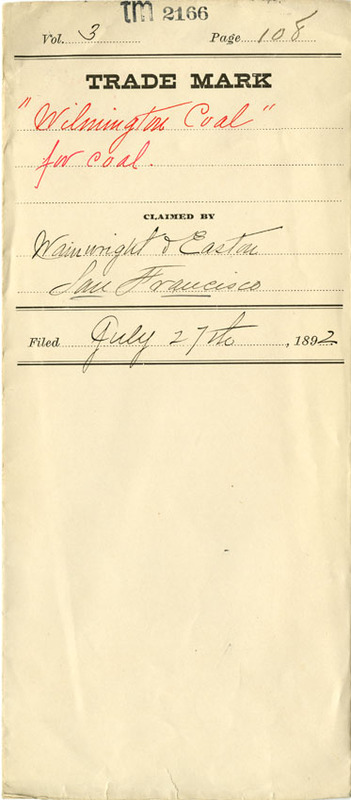 TM 2166
Vol. 3 Page 108
TRADE MARK
"Wilmington Coal"
for coal.
CLAIMED BY
Wainwright & Easton
San Francisco
Filed July 27th, 1892